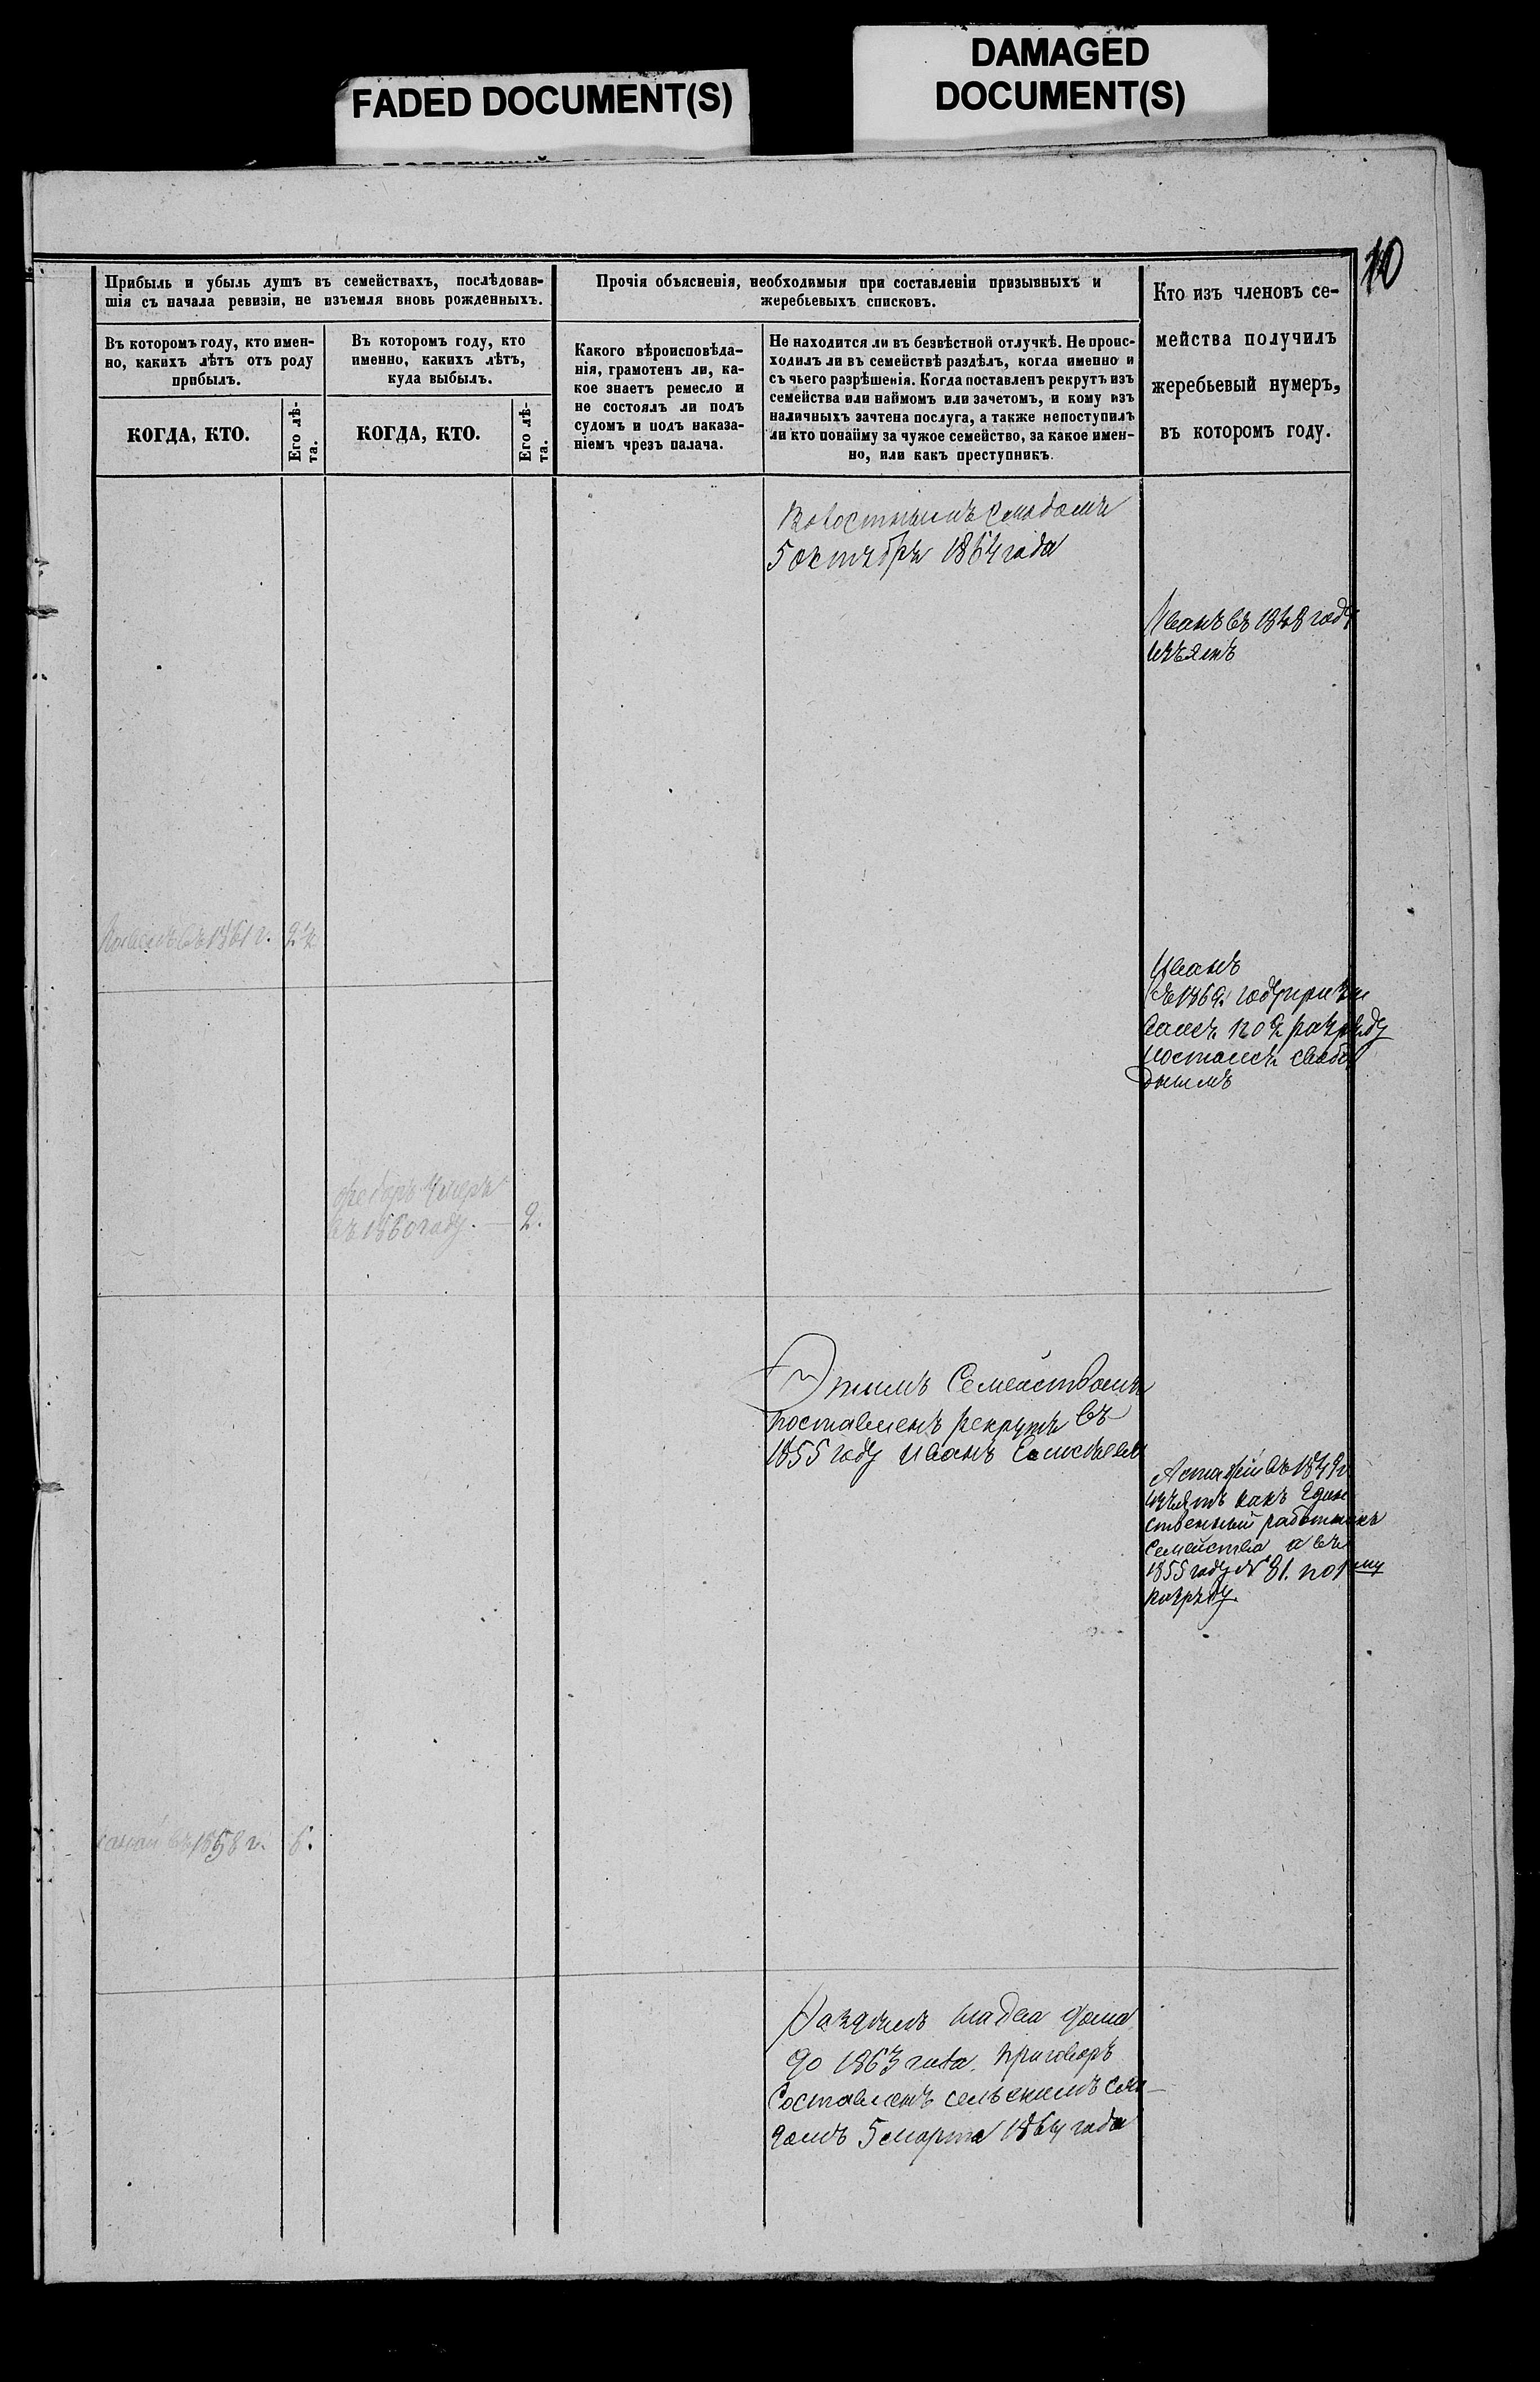 DAMAGED
DOCUMENT(S)
FADED DOCUMENT(S)
10
Прибыль и убыль душъ въ семействахъ, послѣдовав-
шія съ начала ревизіи, не изъемля вновь рожденныхъ.
Въ которомъ году, кто имен-
но, какихъ лѣтъ отъ роду
прибылъ.
КОГДА, КТО.
Его лѣ-
та.
Въ которомъ году, кто
именно, какихъ лѣтъ,
куда выбылъ.
КОГДА, КТО.
Его лѣ-
та.
Прочія объясненія, необходимыя при составленіи призывныхъ и
жеребьевыхъ списковъ.
Какого вѣроисповѣда-
нія, грамотенъ ли, ка-
кое знаетъ ремесло и
не состоялъ ли подъ
судомъ и подъ наказа-
ніемъ чрезъ палача.
Не находится ли въ безвѣстной отлучкѣ. Не проис-
ходилъ ли въ семействѣ раздѣлъ, когда именно и
съ чьего разрѣшенія. Когда поставленъ рекрутъ изъ
семейства или наймомъ или зачетомъ, и кому изъ
наличныхъ зачтена послуга, а также непоступилъ
ли кто понайму за чужое семейство, за какое имен-
но, или какъ преступникъ.
Кто изъ членовъ се-
мейства получилъ
жеребьевый нумеръ,
въ которомъ году.
Волостнымъ сходомъ
5 октября 1864 года
Иванъ въ 1848 году
изъятъ
въ 1861 г.
Иванъ
году призы
вался по 2 разряду
и остался свобо
днымъ
Федоръ умеръ
въ 1860 году. — 2.
Этимъ Семействомъ
поставленъ рекрутъ въ
1855 году Иванъ
Астафій въ
изъятъ какъ Един
ственный работникъ
Семейства а въ
1855 году № 81. по 1му
разряду.
въ 1858 г. 6.
Раздѣлъ
до 1863 года. приговоръ
Составленъ сельскимъ схо-
домъ 5 марта 1864 года